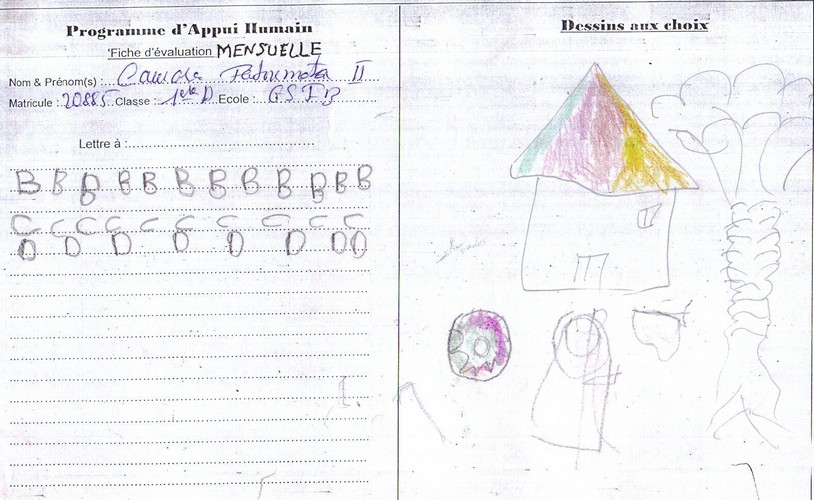 Programme d'Appui Humain
Fiche d'évaluation MENSUELLE
Nom & Prénom(s) : Camara Fatoumata II
Matricule : 20885 Classe : 1ère D Ecole : G.S.I.B
Lettre à :
B B B B B B B B B B B B
C C C C C C C C C C C
D D D D D D D D
Dessins aux choix